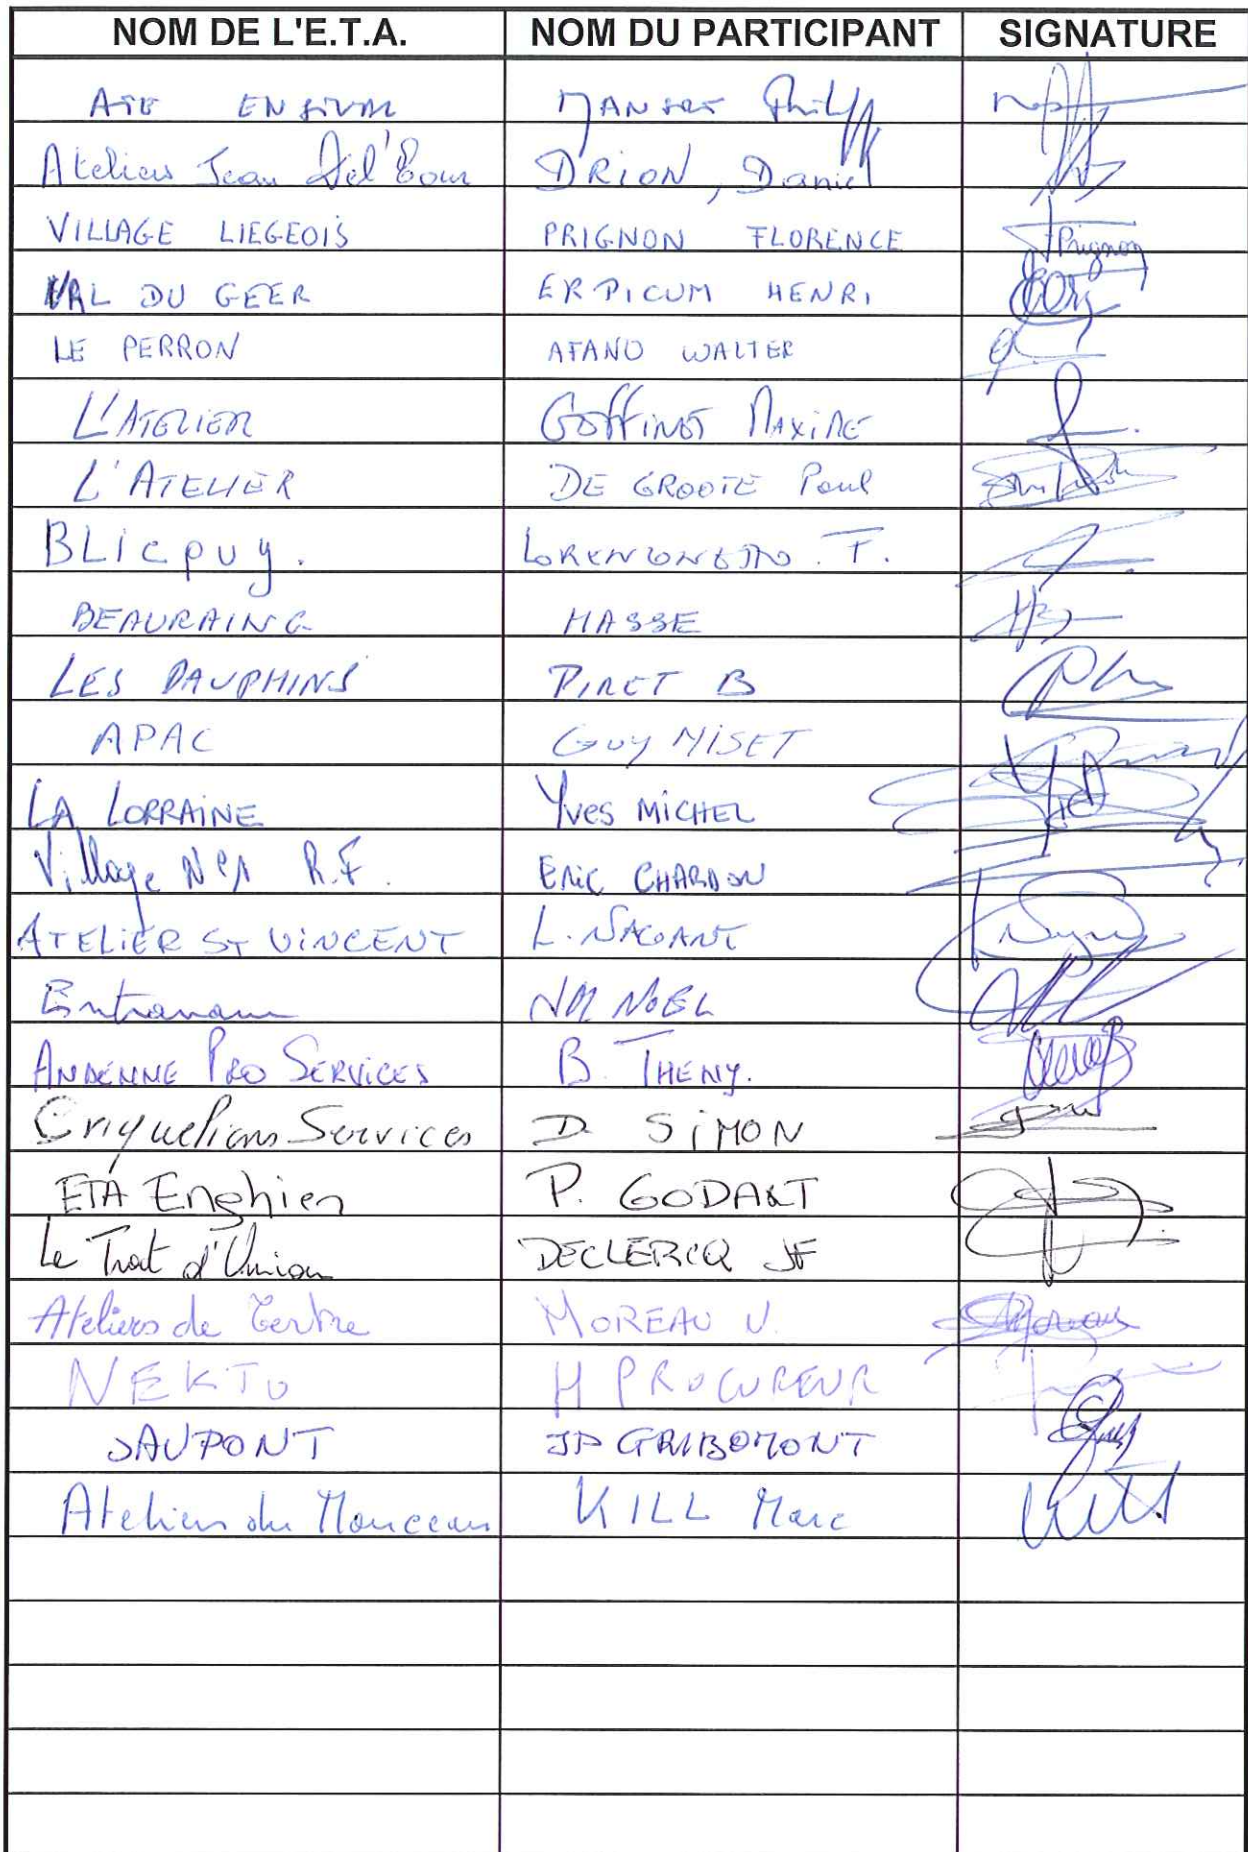 NOM DE L'E.T.A. NOM DU PARTICIPANT SIGNATURE
ENSIVAL
Ateliers Jean Del'Cour DRION, Daniel
VILLAGE LIEGEOIS PRIGNON FLORENCE FPrignon
VAL DU GEER ERPICUM HENRI
LE PERRON AFANO WALTER
L'ATELIER GOFFINET MAXIME
L'ATELIER DE GROOTE Paul
BLicpuy. F.
BEAURAING HASSE
LES DAUPHINS PIRET B
APAC GUY MISET
LA LORRAINE Yves MICHEL
Village N°1 R.F. ERIC CHARDON
ATELIER ST VINCENT L.
Entranam NOEL
ANDENNE PRO SERVICES B. THENY.
Criquelions Services D. SiMON
ETA Enghien P. GODART
Le Trait d'Union DECLERCQ JF
Ateliers de Tertre MOREAU V. Moreau
NEKTO H PROCUREUR
SAUPONT JP GRIBOMONT
Ateliers du Monceau KILL Marc